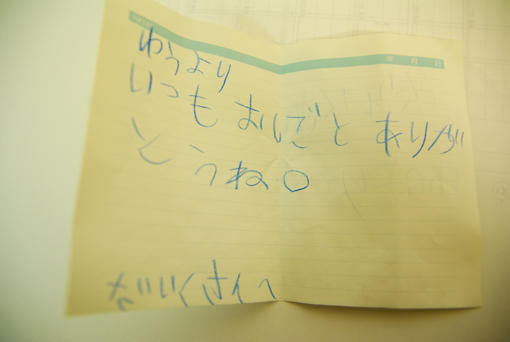 年 月 日
ゆうより
いつも おしごと ありが
とうね○
だいくさんへ